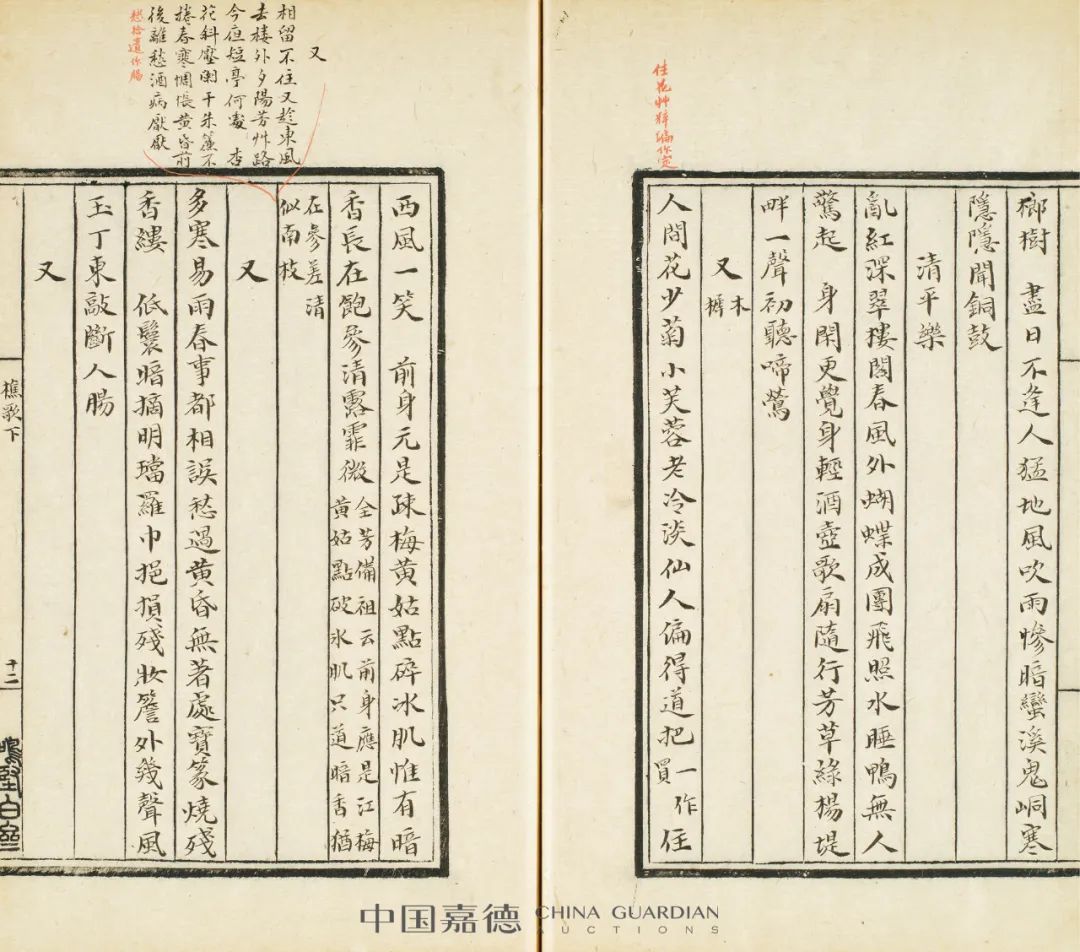 佳花草粹編作定
榔樹　盡日不逢人猛地風吹雨慘暗蠻溪鬼峒寒
隱隱聞銅鼓
清平樂
亂紅深翠樓閣春風外蝴蝶成團飛照水睡鴨無人
驚起　身閑更覺身輕酒壺歌扇隨行芳草綠楊堤
畔一聲初聽啼鶯
又木樨
人間花少菊小芙蓉老冷淡仙人偏得道把一作買住
西風一笑　前身元是疎梅黃姑點碎冰肌惟有暗
香長在飽參清露霏微全芳備祖云前身應是江梅黃姑點破冰肌只道暗香猶
在參差清似南枝
又
相留不住又趁東風
去樓外夕陽芳艸路
今宵短亭何處　杏
花斜壓闌干朱簾不
捲春寒惆悵黃昏前
後離愁酒病厭厭
愁拾遺作腸
又
多寒易雨春事都相誤愁過黃昏無著處寶篆燒殘
香縷　低鬟暗摘明璫羅巾挹損殘妝簷外幾聲風
玉丁東敲斷人腸
又
樵歌下
十二
中国嘉德 CHINA GUARDIAN
AUCTIONS